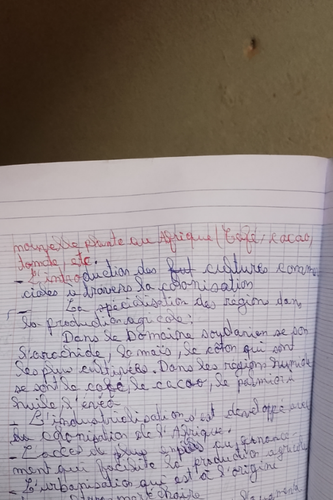 nouvelle plante en Afrique (café, cacao,
tomate etc.
- L'introduction des cultures comm
ciales à travers la colonisation
- La spécialisation des région dans
la production agricole:
Dans le Domaine soudanien se son
l'arachide, le maïs, le coton qui sont
les plus cultivées. Dans les régions
se sont le cacao, le palmier à
huile
- L'industrialisation s'est développé avec
la colonisation de l'Afrique.
- L'accès de financement
ment qui facilite la production agricole
- L'urbanisation qui est à l'origine